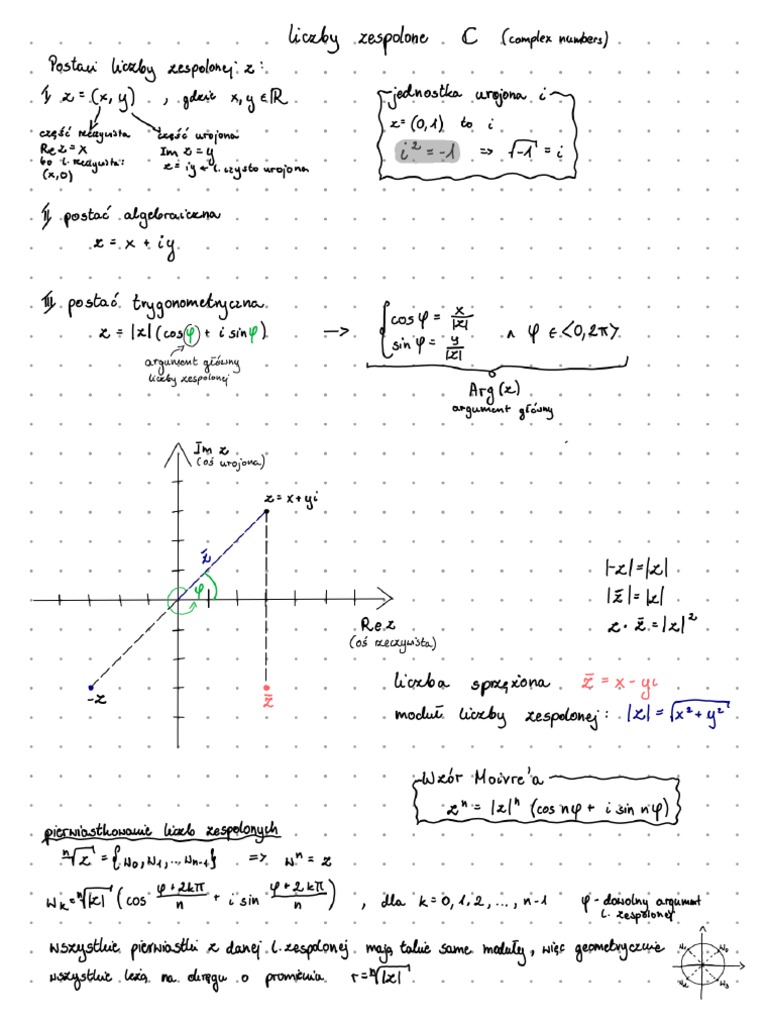 liczby zespolone ℂ (complex numbers)
Postaci liczby zespolonej z:
I) z = (x, y) , gdzie x, y ∈ ℝ
część rzeczywista
Re z = x
bo l. rzeczywista:
(x,0)
część urojona
Im z = y
z = iy ← l. czysto urojona
jednostka urojona i
z = (0,1) to i
i² = -1 => √-1 = i
II) postać algebraiczna
z = x + iy
III) postać trygonometryczna
z = |z| (cos φ + i sin φ)
argument główny
liczby zespolonej
—> { cos φ = x/|z|
sin φ = y/|z|
∧ φ ∈ <0, 2π)
Arg(z)
argument główny
Im z
(oś urojona)
z = x + yi
z̄
φ
Re z
(oś rzeczywista)
-z
z̄
|-z| = |z|
|z̄| = |z|
z · z̄ = |z|²
liczba sprzężona z̄ = x - yi
moduł liczby zespolonej: |z| = √x² + y²
Wzór Moivre'a
zⁿ = |z|ⁿ (cos nφ + i sin nφ)
pierwiastkowanie liczb zespolonych
ⁿ√z = {w₀, w₁, ... wₙ₋₁} => wⁿ = z
wₖ = ⁿ√|z| (cos φ+2kπ/n + i sin φ+2kπ/n) , dla k = 0, 1, 2, ..., n-1
φ - dowolny argument
l. zespolonej
wszystkie pierwiastki z danej l. zespolonej mają takie same moduły, więc geometrycznie
wszystkie leżą na okręgu o promieniu r = ⁿ√|z|
w₁ w₀
w₂ w₃